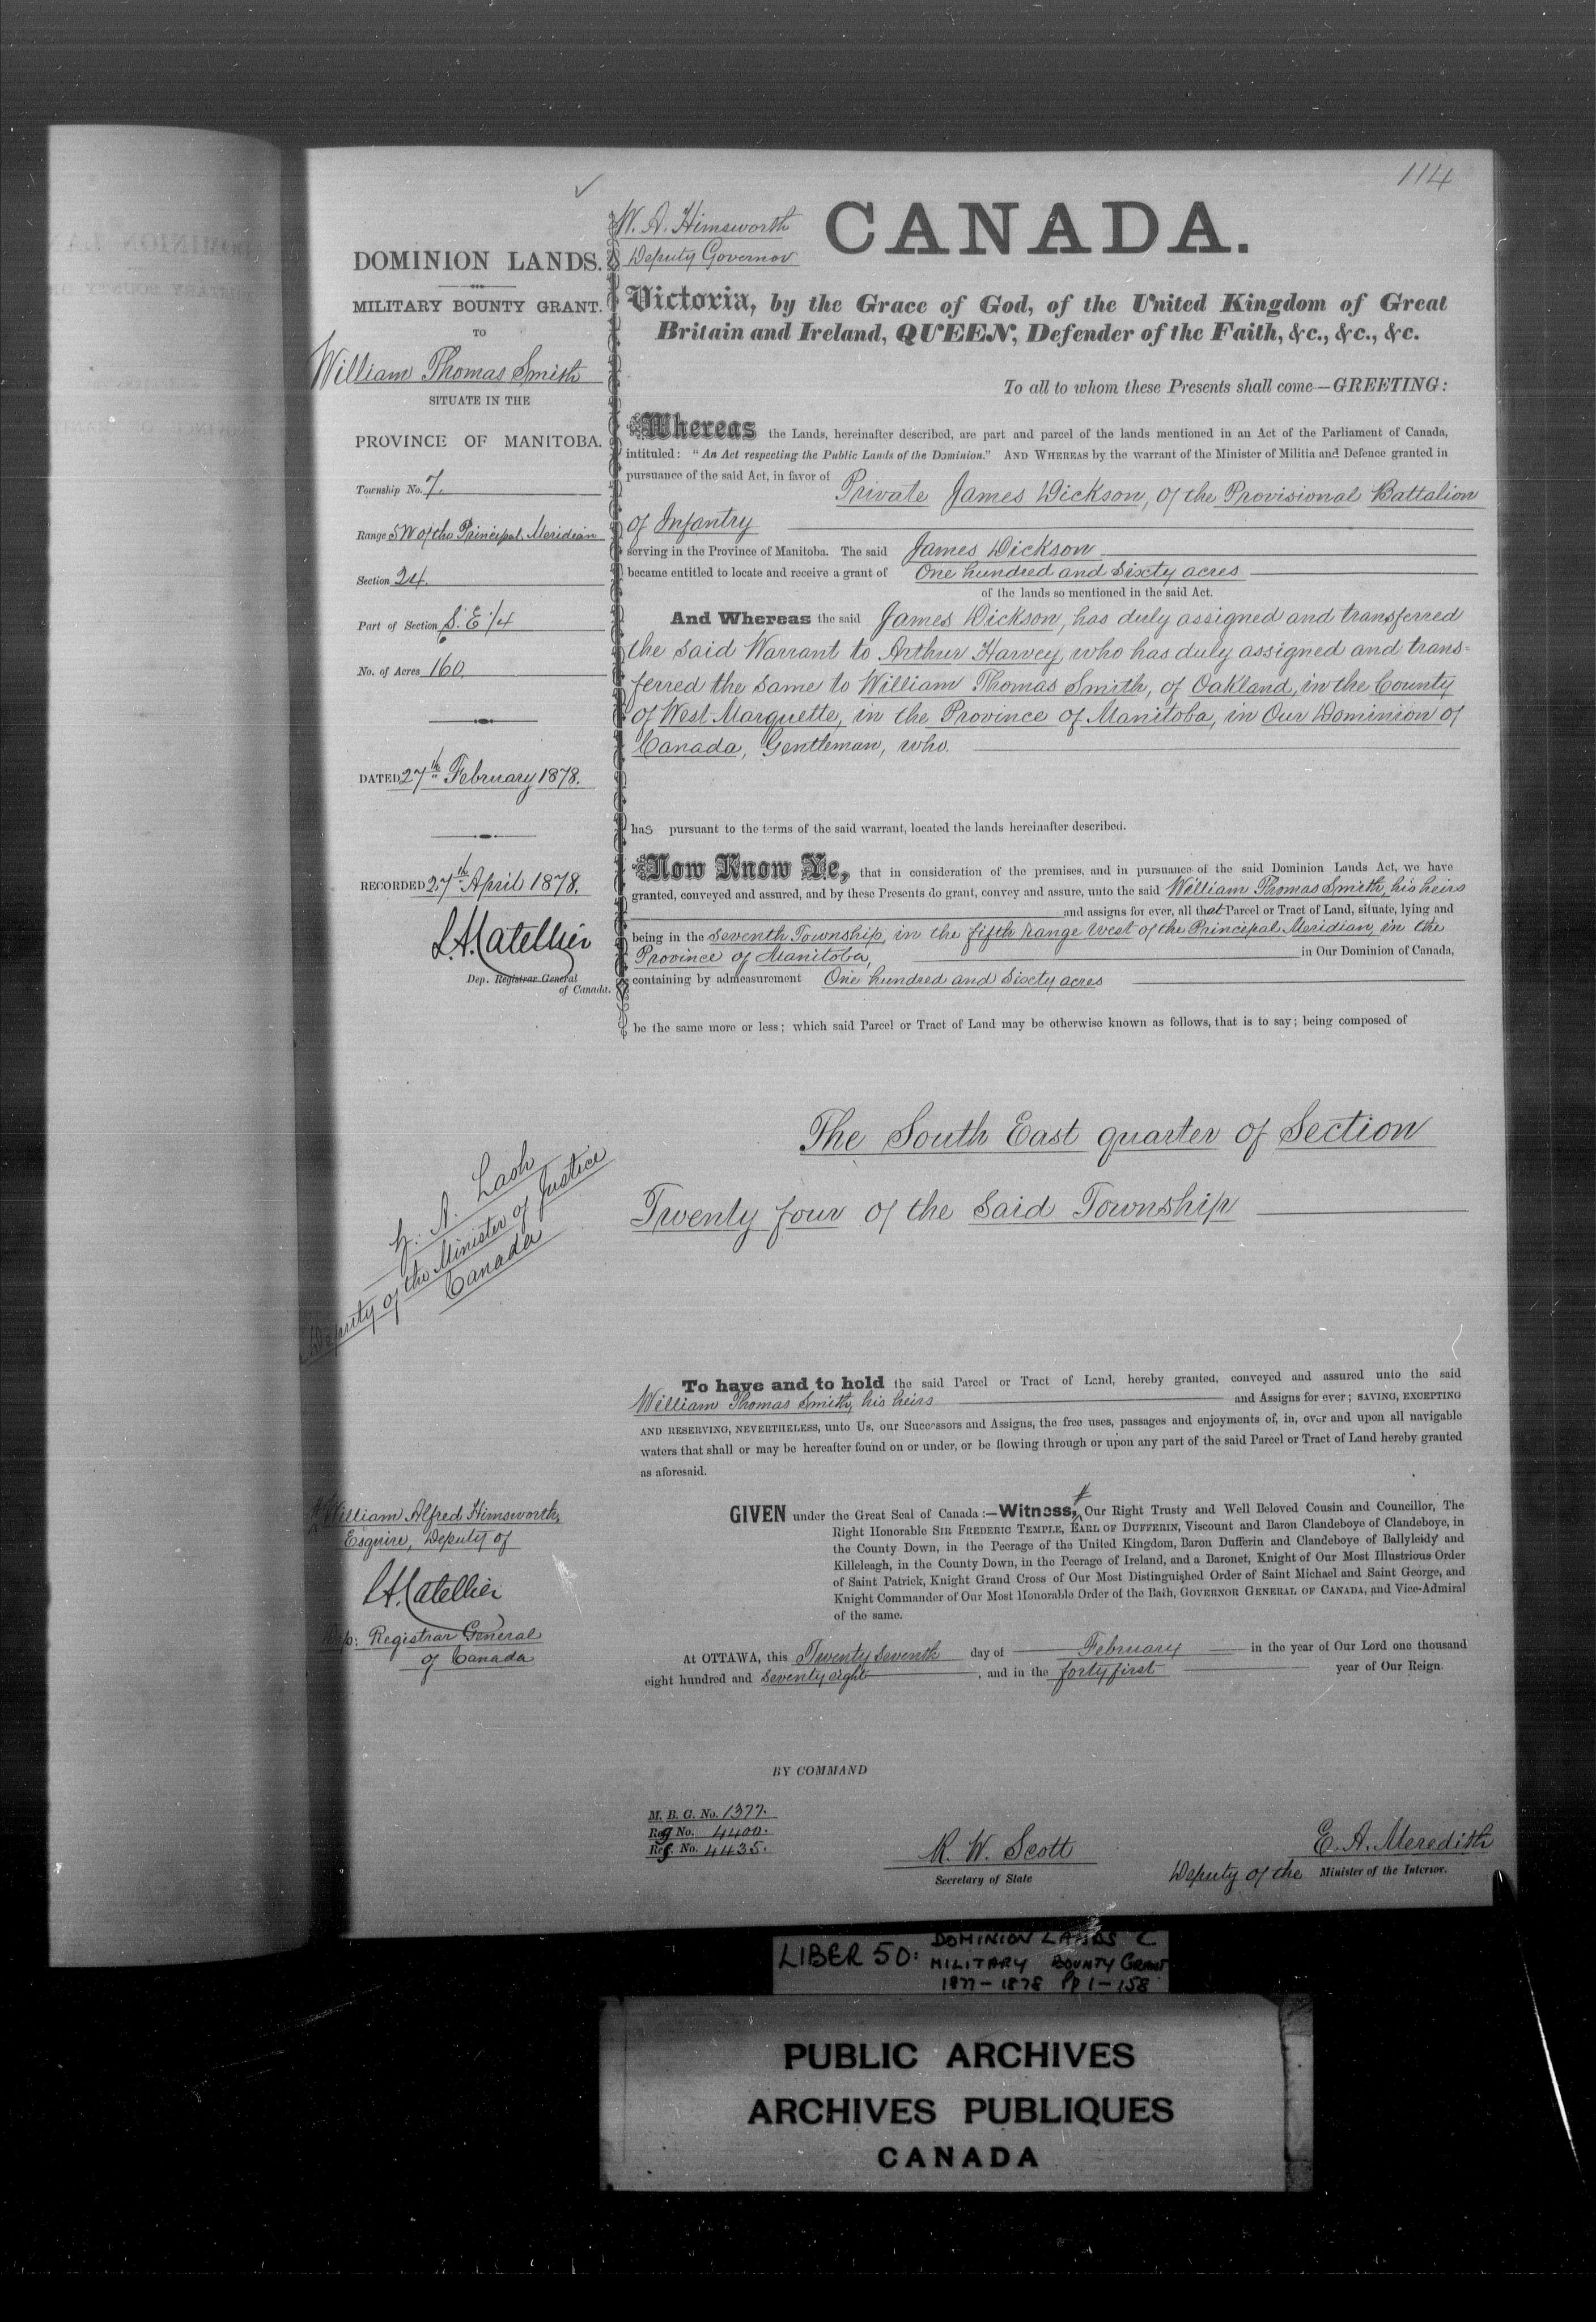 114
W. A. Himsworth
Deputy Governor
CANADA.
DOMINION LANDS.
MILITARY BOUNTY GRANT.
TO
William Thomas Smith
SITUATE IN THE
PROVINCE OF MANITOBA.
Township No. 7.
Range 5 W of the Principal Meridian
Section 24.
Part of Section S. E. 1/4
No. of Acres 160.
DATED 27th February 1878.
RECORDED 27th April 1878.
L.A. Catellier
Dep. Registrar General
of Canada.
Victoria, by the Grace of God, of the United Kingdom of Great
Britain and Ireland, QUEEN, Defender of the Faith, &c., &c., &c.
To all to whom these Presents shall come—GREETING:
Whereas the Lands, hereinafter described, are part and parcel of the lands mentioned in an Act of the Parliament of Canada,
intituled: "An Act respecting the Public Lands of the Dominion." AND WHEREAS by the warrant of the Minister of Militia and Defence granted in
pursuance of the said Act, in favor of Private James Dickson, of the Provisional Battalion
of Infantry
serving in the Province of Manitoba. The said James Dickson
became entitled to locate and receive a grant of One hundred and Sixty acres
of the lands so mentioned in the said Act.
And Whereas the said James Dickson, has duly assigned and transferred
the said Warrant to Arthur Harvey, who has duly assigned and trans=
ferred the same to William Thomas Smith, of Oakland, in the County
of West Marquette, in the Province of Manitoba, in Our Dominion of
Canada, Gentleman, who.
has pursuant to the terms of the said warrant, located the lands hereinafter described.
Now Know Ye, that in consideration of the premises, and in pursuance of the said Dominion Lands Act, we have
granted, conveyed and assured, and by these Presents do grant, convey and assure, unto the said William Thomas Smith, his heirs
and assigns for ever, all that Parcel or Tract of Land, situate, lying and
being in the Seventh Township, in the fifth range West of the Principal Meridian, in the
Province of Manitoba, in Our Dominion of Canada,
containing by admeasurement One hundred and Sixty acres
be the same more or less; which said Parcel or Tract of Land may be otherwise known as follows, that is to say; being composed of
The South East quarter of Section
Twenty four of the said Township
Z. A. Lash
Deputy of the Minister of Justice
Canada
To have and to hold the said Parcel or Tract of Land, hereby granted, conveyed and assured unto the said
William Thomas Smith, his heirs and Assigns for ever; SAVING, EXCEPTING
AND RESERVING, NEVERTHELESS, unto Us, our Successors and Assigns, the free uses, passages and enjoyments of, in, over and upon all navigable
waters that shall or may be hereafter found on or under, or be flowing through or upon any part of the said Parcel or Tract of Land hereby granted
as aforesaid.
# William Alfred Himsworth,
Esquire, Deputy of
L.A. Catellier
Dep: Registrar General
of Canada
GIVEN under the Great Seal of Canada:—Witness, # Our Right Trusty and Well Beloved Cousin and Councillor, The
Right Honorable SIR FREDERIC TEMPLE, EARL OF DUFFERIN, Viscount and Baron Clandeboye of Clandeboye, in
the County Down, in the Peerage of the United Kingdom, Baron Dufferin and Clandeboye of Ballyleidy and
Killeleagh, in the County Down, in the Peerage of Ireland, and a Baronet, Knight of Our Most Illustrious Order
of Saint Patrick, Knight Grand Cross of Our Most Distinguished Order of Saint Michael and Saint George, and
Knight Commander of Our Most Honorable Order of the Bath, GOVERNOR GENERAL OF CANADA, and Vice-Admiral
of the same.
At OTTAWA, this Twenty Seventh day of February in the year of Our Lord one thousand
eight hundred and Seventy eight, and in the forty first year of Our Reign.
BY COMMAND
M. B. G. No. 1377.
Reg No. 4400.
Ref. No. 4435.
R. W. Scott
Secretary of State
E. A. Meredith
Deputy of the Minister of the Interior.
LIBER 50: DOMINION LANDS C
MILITARY BOUNTY GRANT
1877-1878 Pp 1-158
PUBLIC ARCHIVES
ARCHIVES PUBLIQUES
CANADA